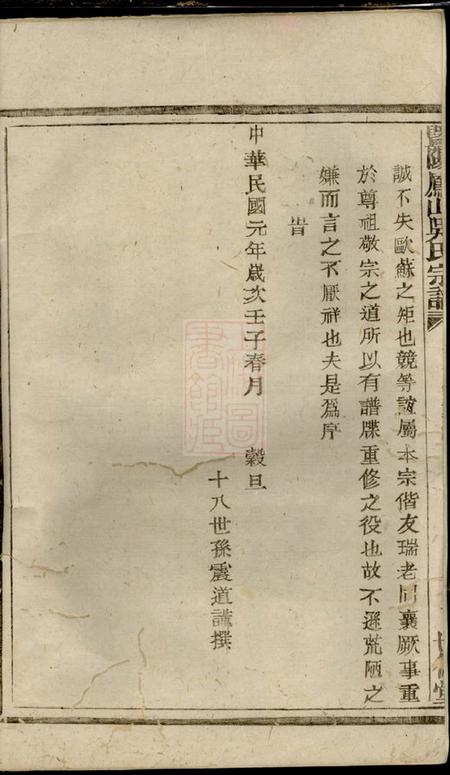 誠不失歐蘇之矩也競等誼屬本宗偕友瑞老同襄厥事重
於尊祖敬宗之道所以有譜牒重修之役也故不遜荒陋之
嫌而言之不厭祥也夫是爲序
旹
中華民國元年歲次壬子春月 穀旦
十八世孫震道謹撰
鳳山吳氏宗譜
上海圖書館藏